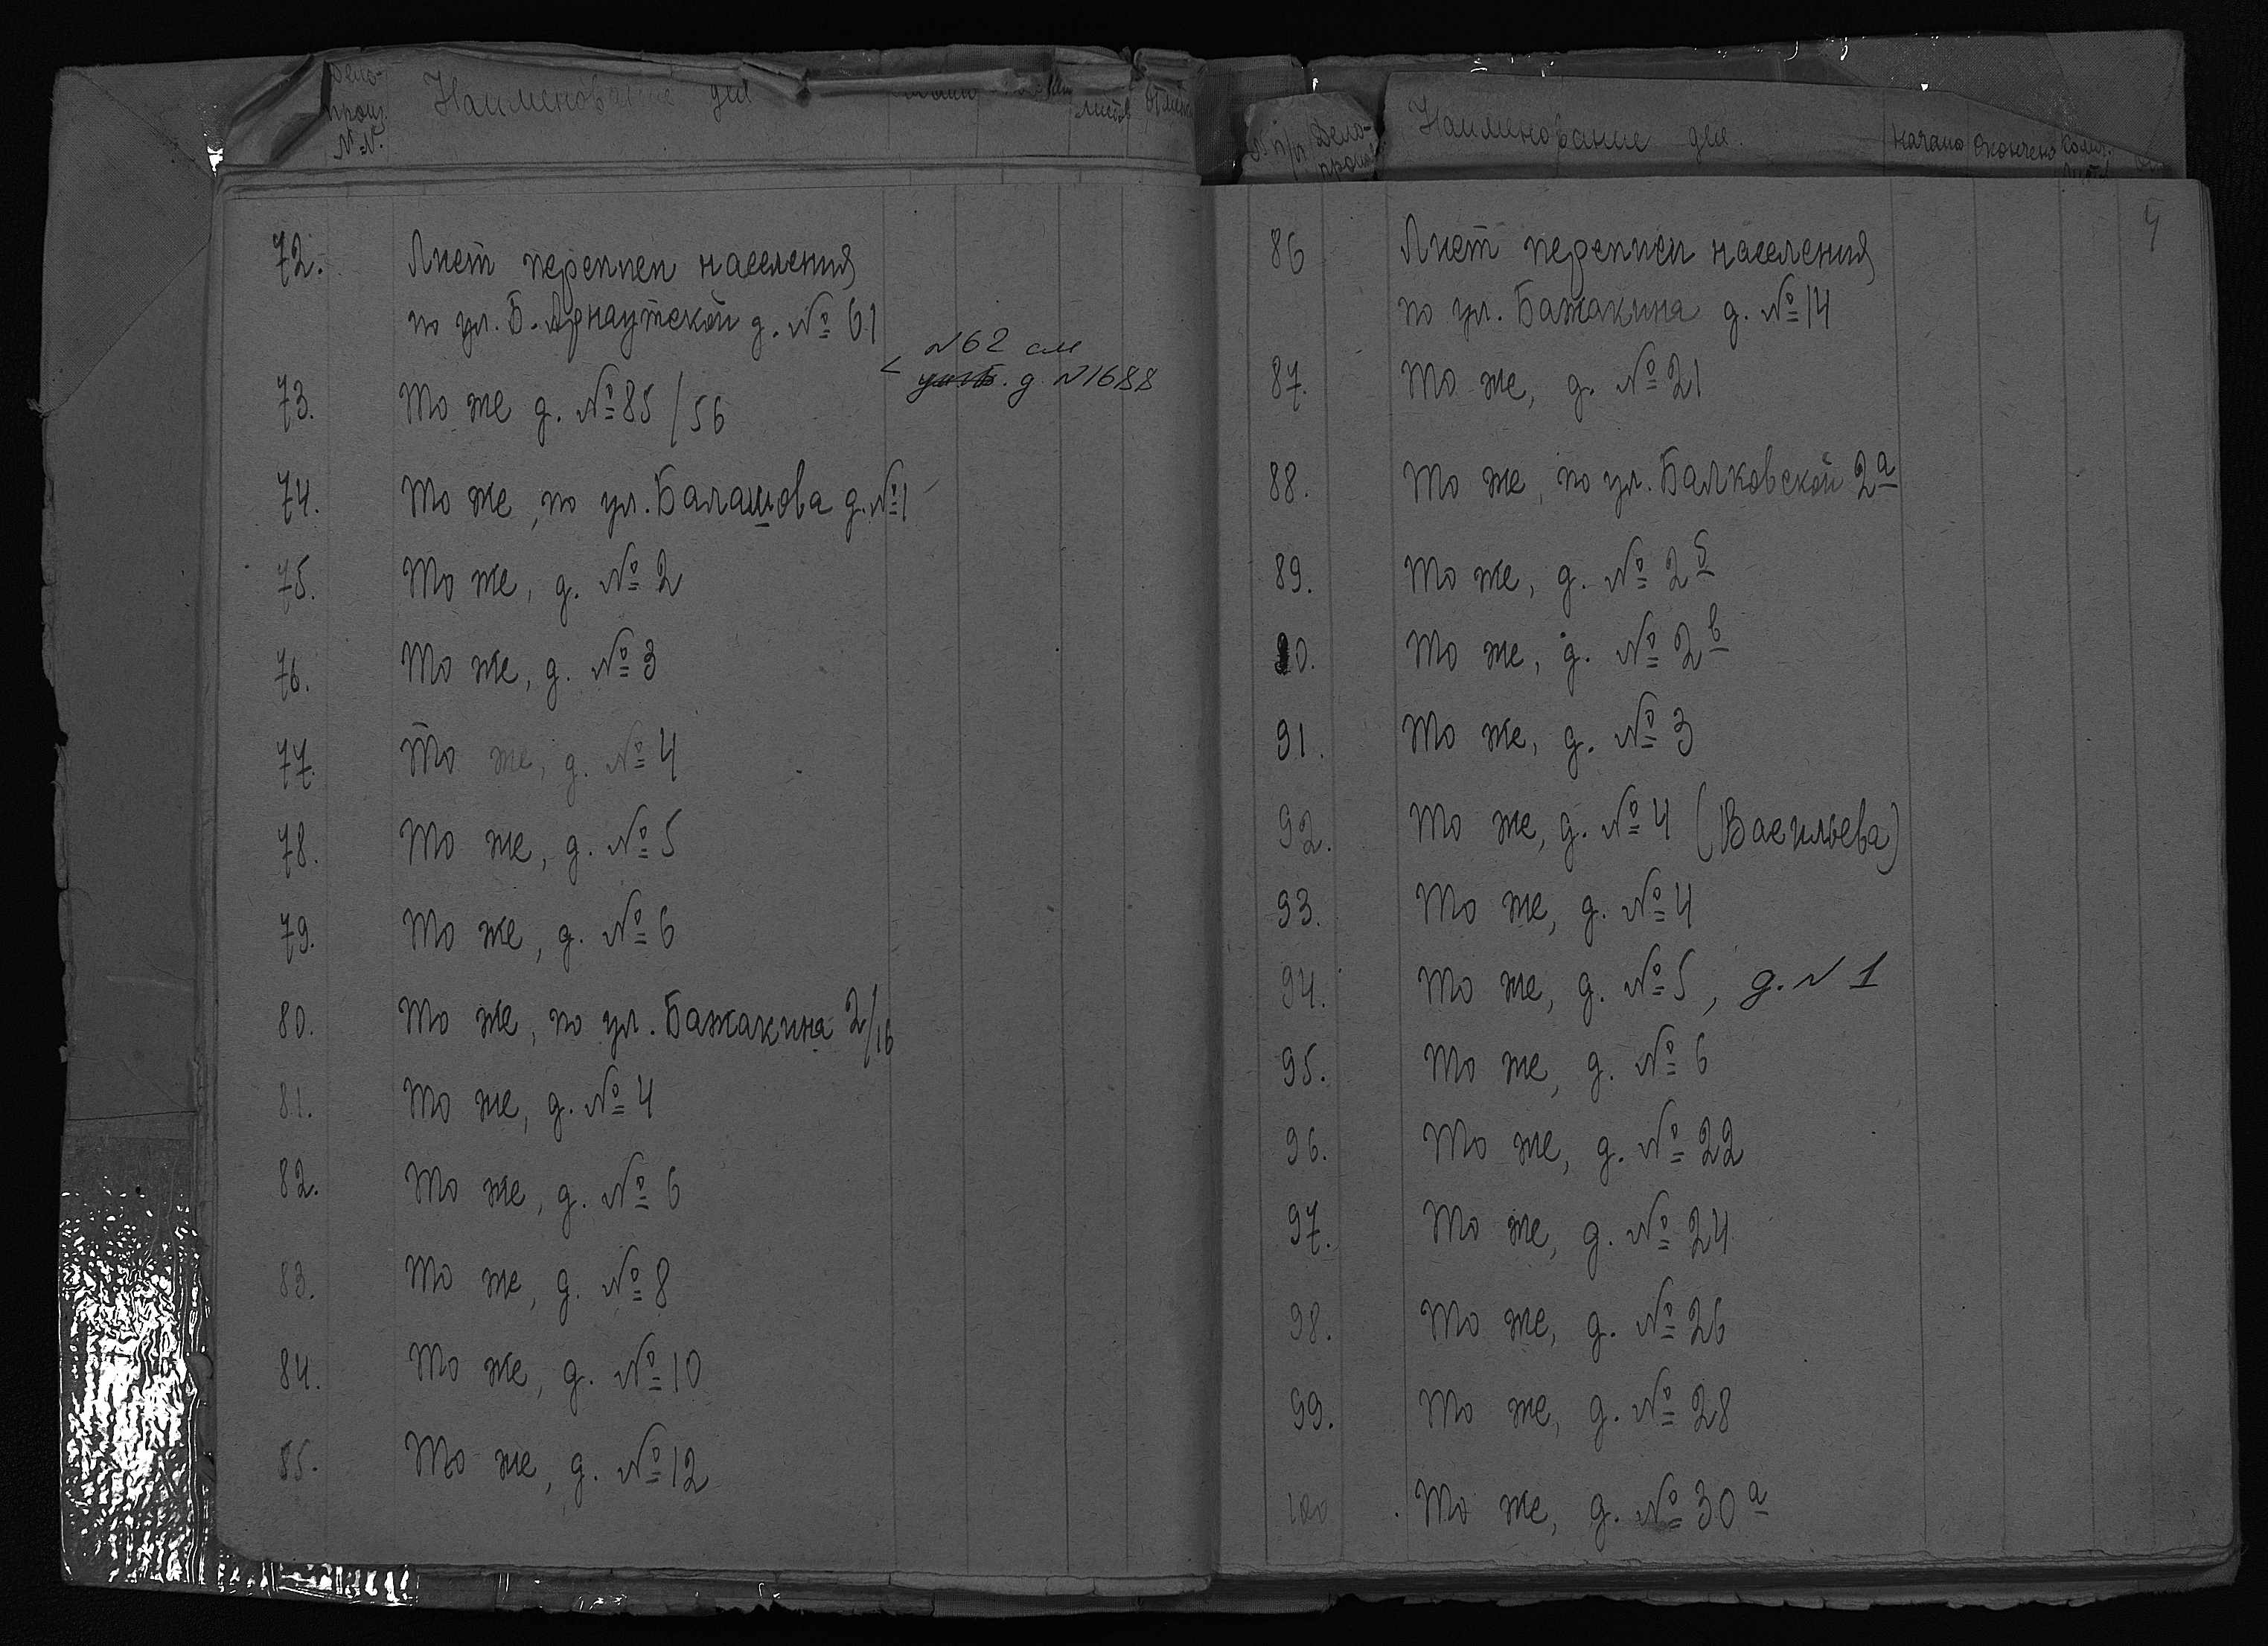 Дело-
произ.
№№
Наименование дел
листов
72. Лист переписи населения
по ул. Б. Арнаутской д. № 61
№62 см
д. №1688
73. То же д. № 85/56
74. То же, по ул. Балашова д. №1
75. То же, д. № 2
76. То же, д. № 3
77. То же, д. № 4
78. То же, д. № 5
79. То же, д. № 6
80. То же, по ул. Бажакина 2/16
81. То же, д. № 4
82. То же, д. № 6
83. То же, д. № 8
84. То же, д. № 10
85. То же, д. № 12
п/п Дело-
произ
Наименование дел.
Начато Окончено Колич.
4
86 Лист переписи населения
по ул. Бажакина д. № 14
87. То же, д. № 21
88. То же, по ул. Балковской 2а
89. То же, д. № 2б
90. То же, д. № 2в
91. То же, д. № 3
92. То же, д. № 4 (Васильева)
93. То же, д. № 4
94. То же, д. № 5, д. № 1
95. То же, д. № 6
96. То же, д. № 22
97. То же, д. № 24
98. То же, д. № 26
99. То же, д. № 28
100 То же, д. № 30а